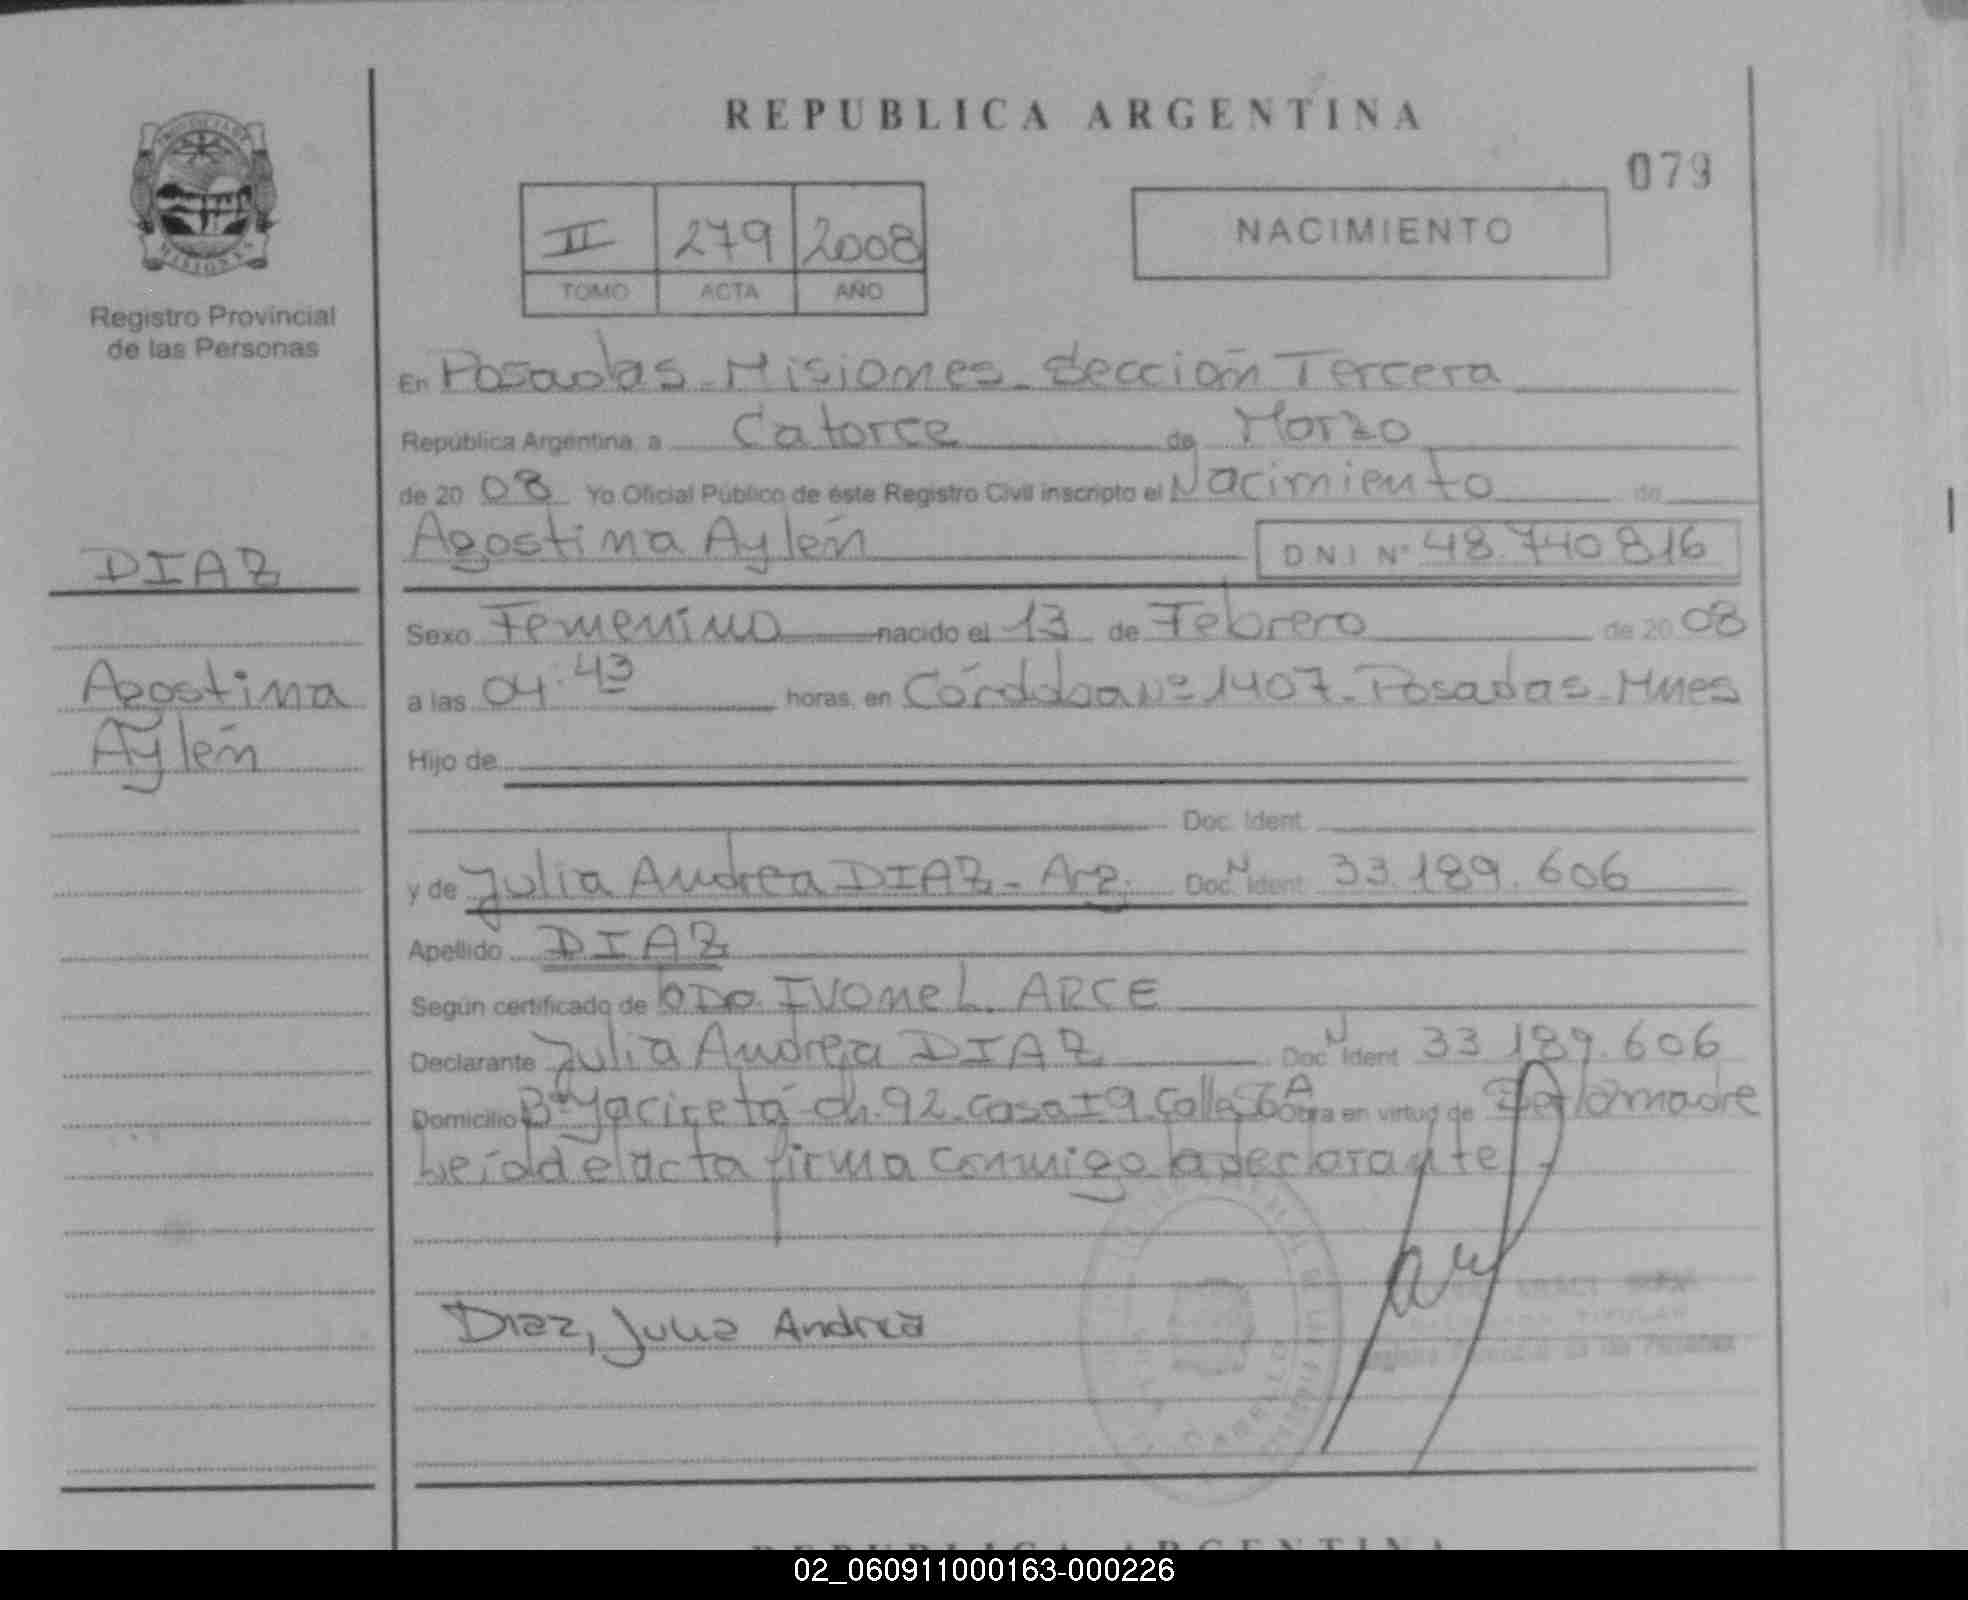 REPUBLICA ARGENTINA
079
PROVINCIA DE
MISIONES
Registro Provincial
de las Personas
II 279 2008
TOMO ACTA AÑO
NACIMIENTO
En Posadas - Misiones - Sección Tercera
República Argentina, a Catorce de Marzo
de 20 08 Yo Oficial Público de éste Registro Civil inscripto el Nacimiento de
Agostina Aylén DNI Nº 48.740 816
DIAZ
Agostina
Aylén
Sexo Femenino nacido el 13 de Febrero de 20 08
a las 04:43 horas, en Córdoba Nº 1407 - Posadas - Mnes
Hijo de
Doc. Ident.
y de Julia Andrea DIAZ - Arg. Doc. N Ident 33.189.606
Apellido DIAZ
Según certificado de Ivone L. ARCE
Declarante Julia Andrea DIAZ Doc N Ident 33 189.606
Domicilio Bº Yaciretá ch. 92. casa 19 Calle Obra en virtud de la madre
Leída el acta firma conmigo la declarante
Diaz, Julia Andrea
TITULAR
REPUBLICA ARGENTINA
02_060911000163-000226